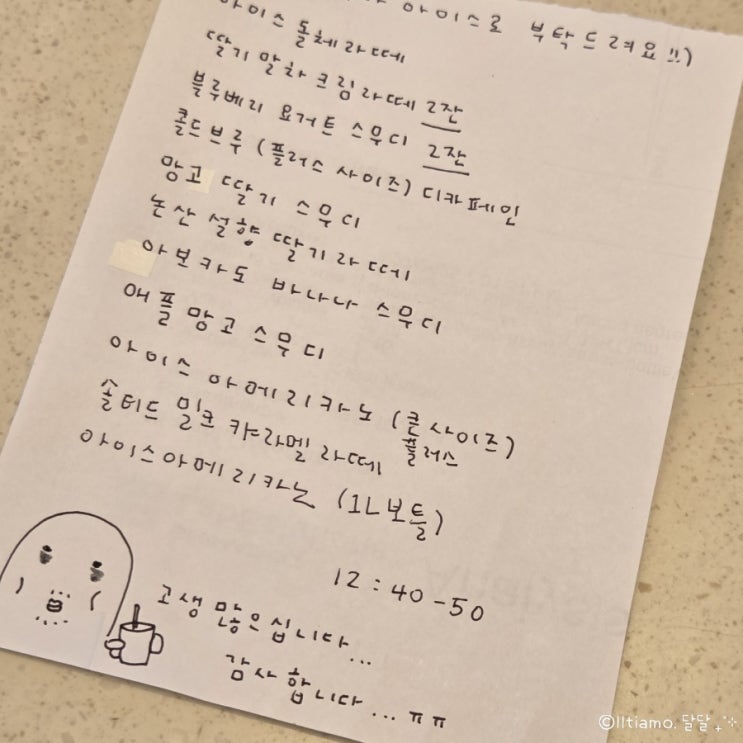 아이스로 부탁드려요!!)
아이스 돌체라떼
딸기 말차크림라떼 2잔
블루베리 요거트 스무디 2잔
콜드브루 (플러스 사이즈) 디카페인
망고 딸기 스무디
논산 설향 딸기라떼
아보카도 바나나 스무디
애플망고 스무디
아이스 아메리카노 (큰사이즈)
플러스
솔티드 밀크 캬라멜 라떼
아이스아메리카노 (1L보틀)
12:40-50
고생 많으십니다...
감사합니다...ㅠㅠ
©Iltiamo.달달